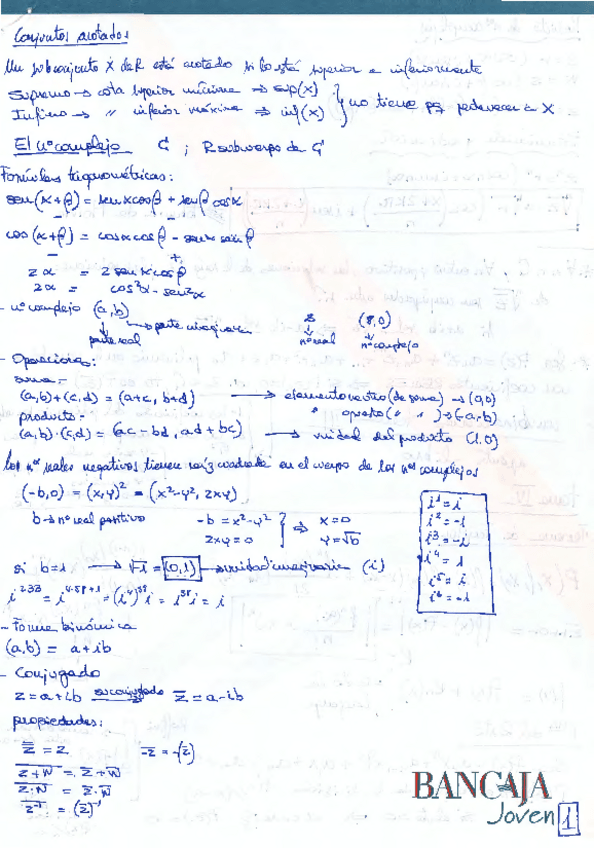 Conjuntos acotados
Un subconjunto X de R está acotado si lo está superior e inferiormente
Supremo → cota superior mínima → sup(X) } no tiene pq pertenecer a X
Ínfimo → " inferior máxima → inf(X)
El nº complejo C ; R subcuerpo de C
Fórmulas trigonométricas:
sen(α ± β) = senα cosβ ± senβ cosα
cos(α ± β) = cosα cosβ ∓ senα senβ
2α = 2 senα cosβ
2α = cos²α - sen²α
- nº complejo (a,b) → parte imaginaria 8 (8,0)
↓ parte real ↓ nº real ↓ nº complejo
- Operaciones:
suma -
(a,b)+(c,d) = (a+c, b+d) → elemento neutro (de suma) → (0,0)
" opuesto ( " " ) → (-a,-b)
producto -
(a,b)·(c,d) = (ac-bd, ad+bc) → unidad del producto (1,0)
Los nºs reales negativos tienen raíz cuadrada en el cuerpo de los nºs complejos
(-b,0) = (x,y)² = (x²-y², 2xy)
b → nº real positivo -b = x²-y² } ⇒ x=0
2xy=0 y=√b
si b=1 → √-1 = (0,1) → unidad imaginaria (i)
i¹=i
i²=-1
i³=-i
i⁴=1
i⁵=i
i⁶=-1
- Forma binómica
(a,b) = a+ib
- Conjugado
z=a+ib su conjugado z̄=a-ib
propiedades:
z̿ = z -z̅ = -(z̅)
z+w̅ = z̅+w̅
z·w̅ = z̅·w̅
z⁻¹̅ = (z̅)⁻¹
BANCAJA
Joven 1